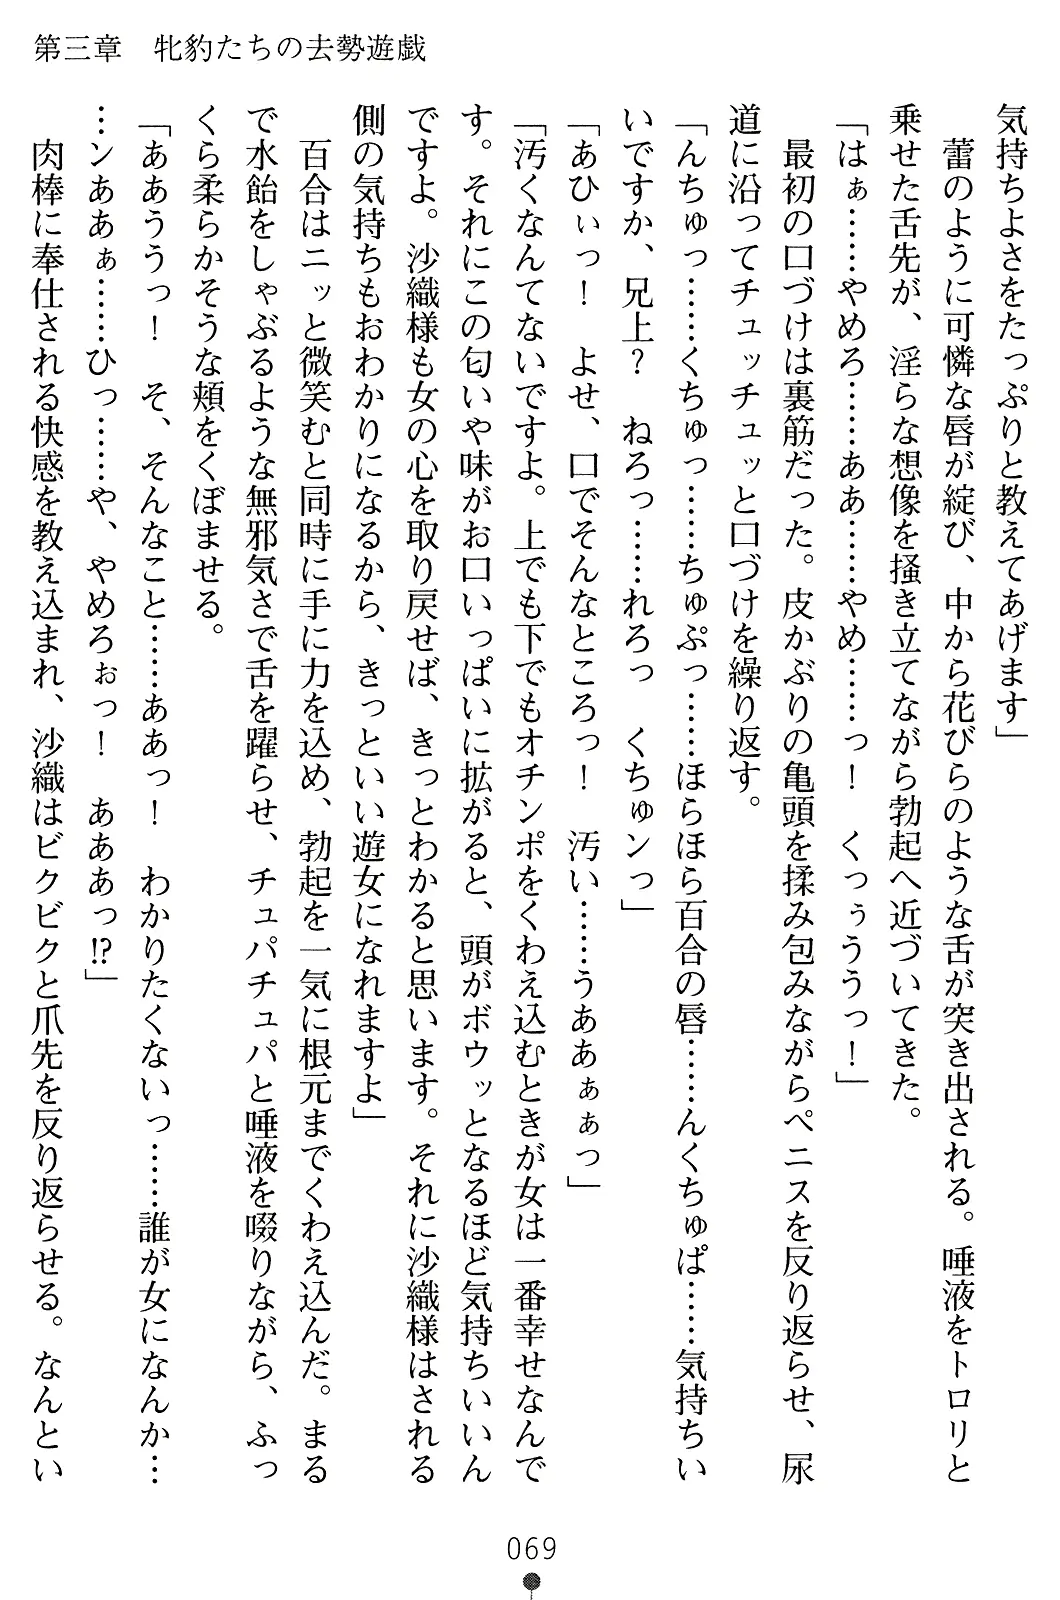 第三章　牝豹たちの去勢遊戯
気持ちよさをたっぷりと教えてあげます」
　蕾のように可憐な唇が綻び、中から花びらのような舌が突き出される。唾液をトロリと
乗せた舌先が、淫らな想像を掻き立てながら勃起へ近づいてきた。
「はぁ……やめろ……ああ……やめ……っ！　くっぅううっ！」
　最初の口づけは裏筋だった。皮かぶりの亀頭を揉み包みながらペニスを反り返らせ、尿
道に沿ってチュッチュッと口づけを繰り返す。
「んちゅっ……くちゅっ……ちゅぷっ……ほらほら百合の唇……んくちゅぱ……気持ちい
いですか、兄上？　ねろっ……れろっ　くちゅンっ」
「あひぃっ！　よせ、口でそんなところっ！　汚い……うああぁぁっ」
「汚くなんてないですよ。上でも下でもオチンポをくわえ込むときが女は一番幸せなんで
す。それにこの匂いや味がお口いっぱいに拡がると、頭がボウッとなるほど気持ちいいん
ですよ。沙織様も女の心を取り戻せば、きっとわかると思います。それに沙織様はされる
側の気持ちもおわかりになるから、きっといい遊女になれますよ」
　百合はニッと微笑むと同時に手に力を込め、勃起を一気に根元までくわえ込んだ。まる
で水飴をしゃぶるような無邪気さで舌を躍らせ、チュパチュパと唾液を啜りながら、ふっ
くら柔らかそうな頬をくぼませる。
「ああううっ！　そ、そんなこと……ああっ！　わかりたくないっ……誰が女になんか…
…ンああぁ……ひっ……や、やめろぉっ！　あああっ!?」
　肉棒に奉仕される快感を教え込まれ、沙織はビクビクと爪先を反り返らせる。なんとい
069